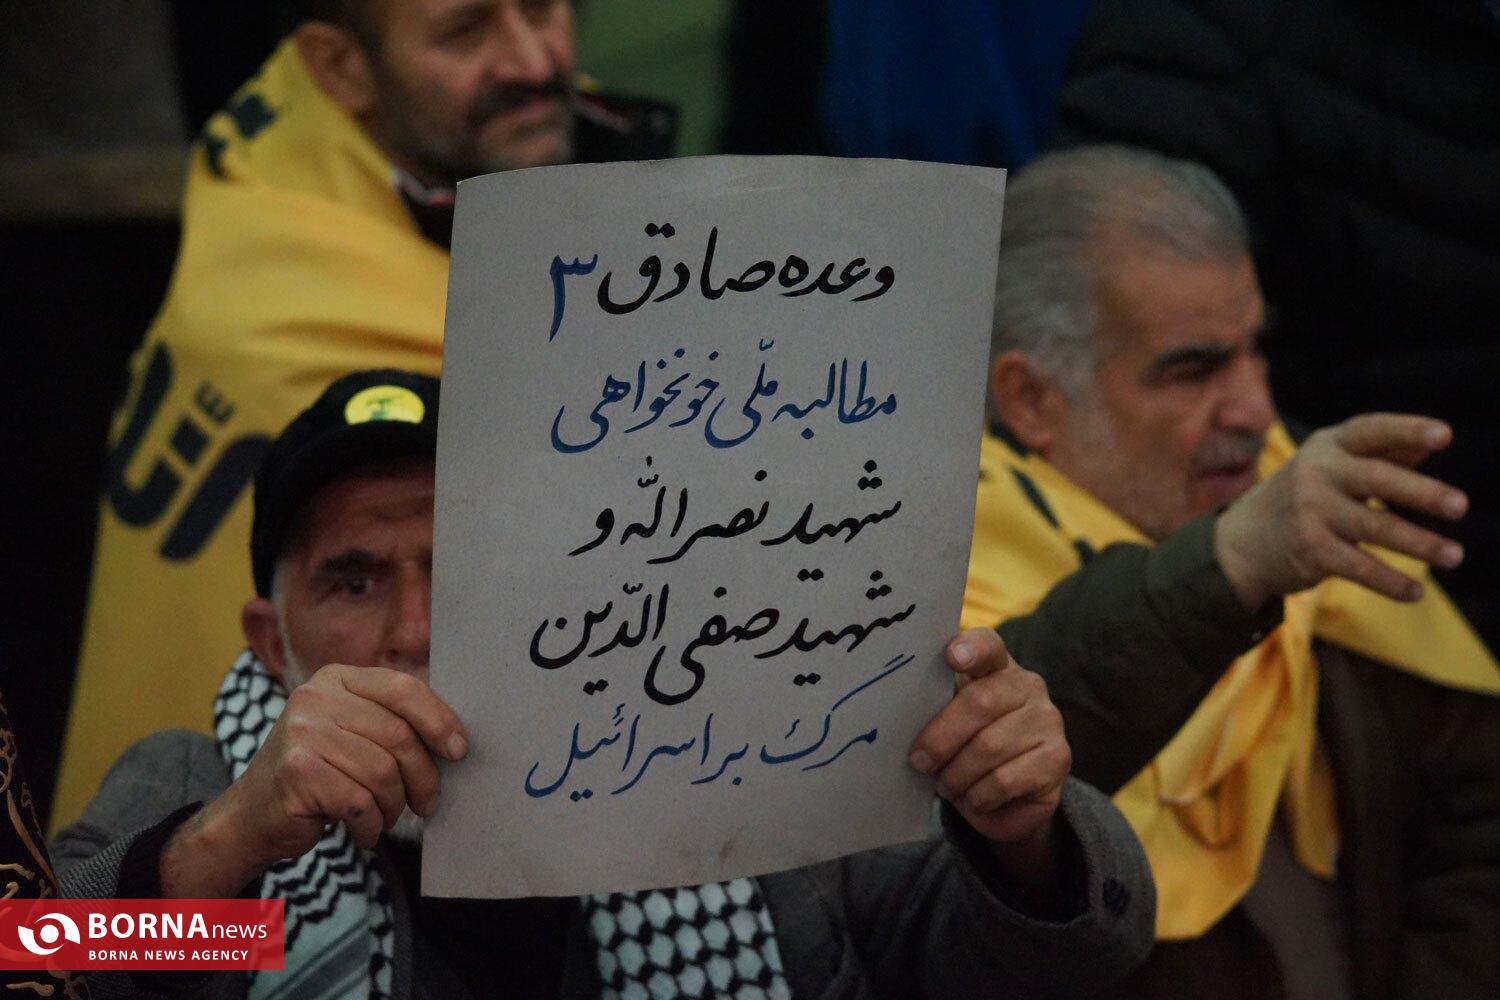 وعده صادق ۳
مطالبه ملّی خونخواهی
شهید نصرالله و
شهید صفی الدّین
مرگ بر اسرائیل
BORNAnews
BORNA NEWS AGENCY